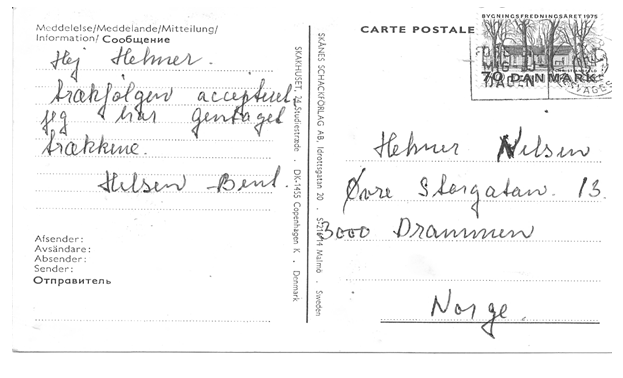 Meddelelse/Meddelande/Mitteilung/
Information/ Сообщение
Hej Helmer.
trækfølgen accepteret,
jeg har gentaget
trækkene.
Hilsen Bent.
Afsender:
Avsändare:
Absender:
Sender:
Отправитель
SKAKHUSET, 24 Studiestræde . DK-1455 Copenhagen K . Denmark
SKÅNES SCHACKFÖRLAG AB, Idrottsgatan 20 . S-21614 Malmö . Sweden
CARTE POSTALE
BYGNINGSFREDNINGSÅRET 1975
70 DANMARK
Helmer Nilsen
Øvre Storgatan. 13.
3000 Drammen
Norge.